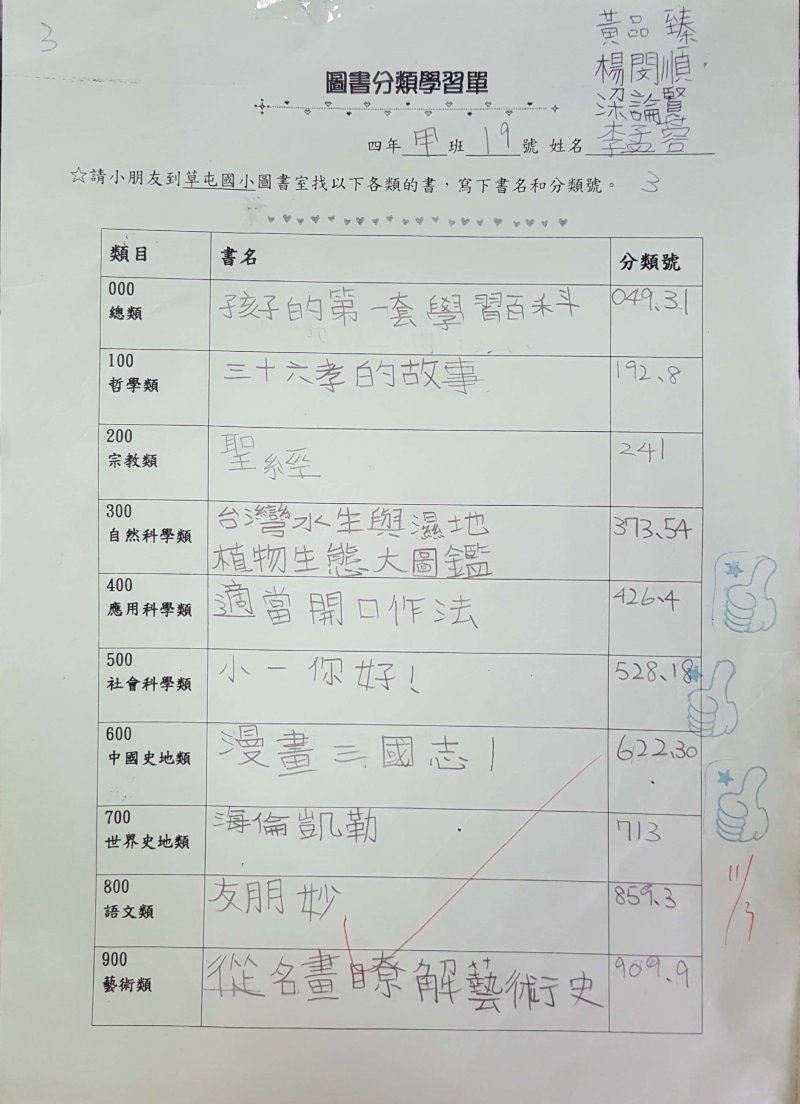 3
黃品臻
楊閔順
梁論賢
李孟蓉
圖書分類學習單
四年甲班19號 姓名
☆請小朋友到草屯國小圖書室找以下各類的書，寫下書名和分類號。 3
類目 書名 分類號
000
總類 孩子的第一套學習百科 049.31
100
哲學類 三十六孝的故事 192.8
200
宗教類 聖經 241
300
自然科學類 台灣水生與濕地
植物生態大圖鑑 373.54
400
應用科學類 適當開口作法 426.4
500
社會科學類 小一你好! 528.18
600
中國史地類 漫畫三國志1 622.30
700
世界史地類 海倫凱勒 713
800
語文類 友朋妙 859.3
900
藝術類 從名畫瞭解藝術史 909.9
11/3